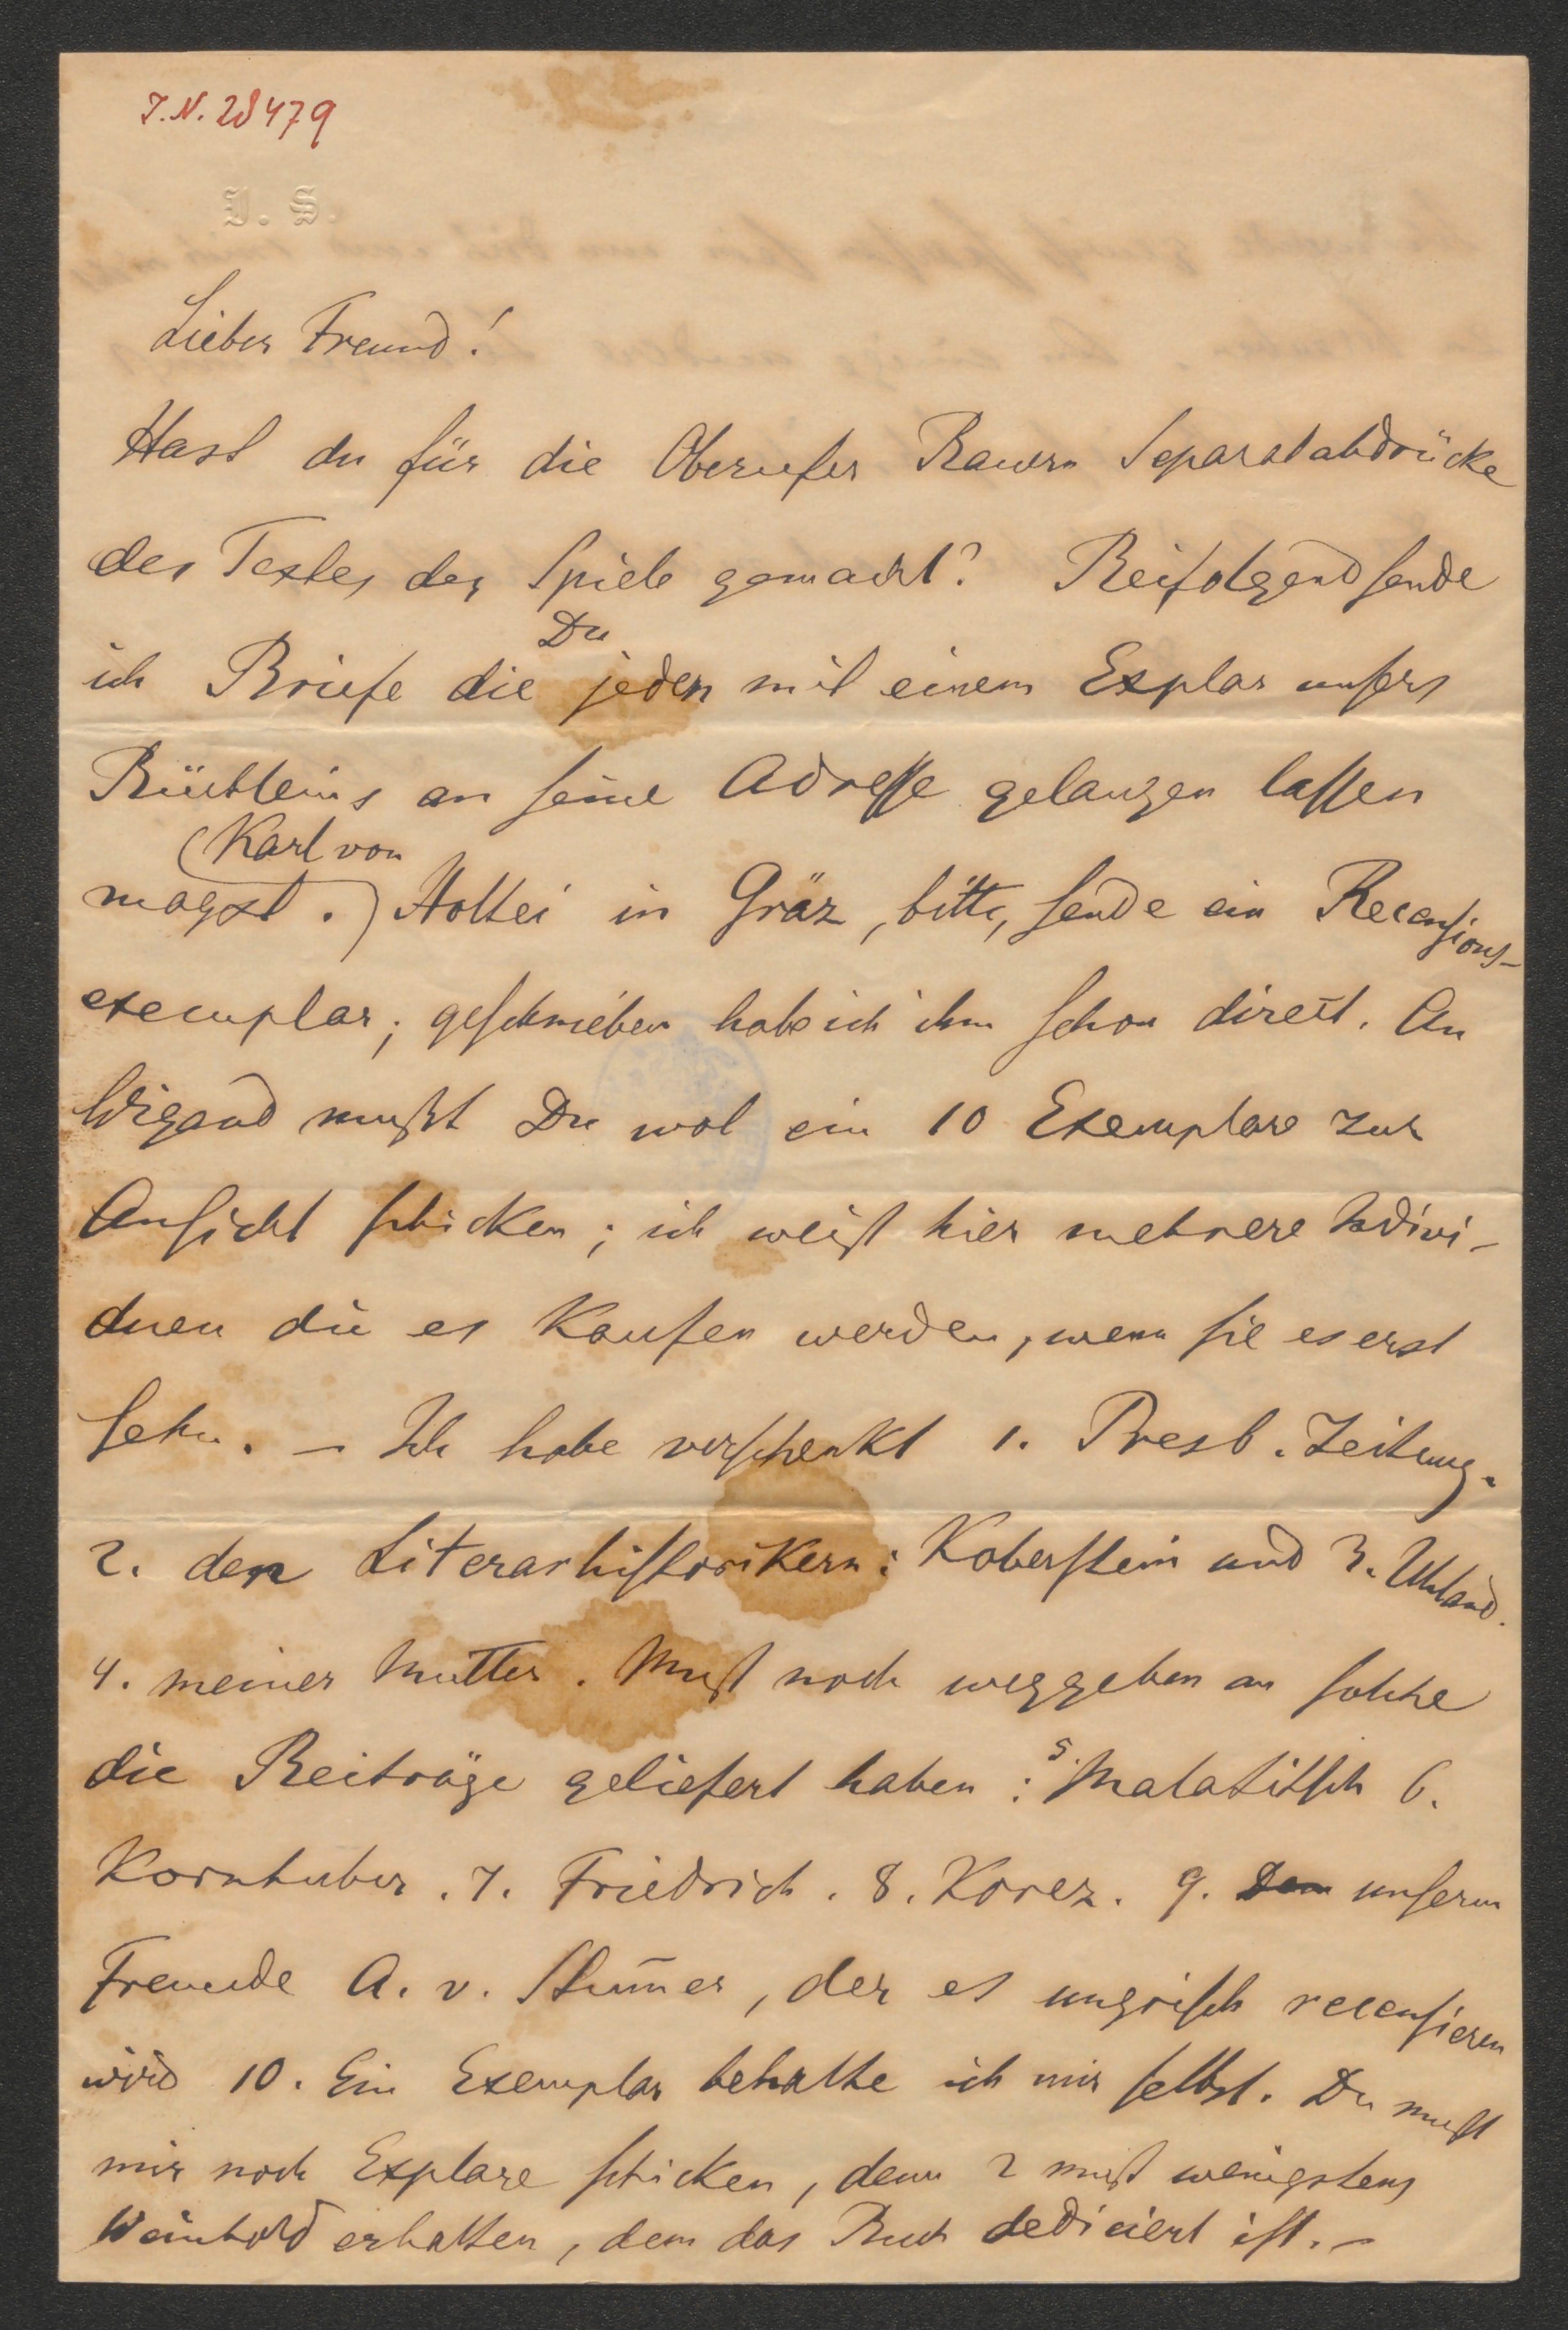 I.N. 28479
J. S.
Lieber Freund!
Hast du für die Oberufer Bauern Separatabdrücke
des Textes der Spiele gemacht? Beifolgend sende
ich Briefe die Du jeden mit einem Explar unsers
Büchleins an seine Adresse gelangen lassen
magst. (Karl von) Holtei in Gräz, bitte, sende ein Recensions-
exemplar; geschrieben habe ich ihm schon direct. An
Wigand mußt Du wol ein 10 Exemplare zur
Ansicht schicken; ich weiß hier mehrere Indivi-
duen die es kaufen werden, wenn sie es erst
sehn. – Ich habe verschenkt 1. Presb. Zeitung.
2. den Literarhistorikern: Koberstein und 3. Uhland.
4. meiner Mutter. Muß noch weggeben an solche
die Beiträge geliefert haben: 5. Malatitsch 6.
Kornhuber. 7. Friedrich. 8. Korez. 9. unserm
Freunde A. v. Stum̄er, der es ungrisch recensieren
wird 10. Ein Exemplar behalte ich mir selbst. Du must
mir noch Explare schicken, denn 2 muß wenigstens
Weinhold erhalten, dem das Buch dediciert ist. –